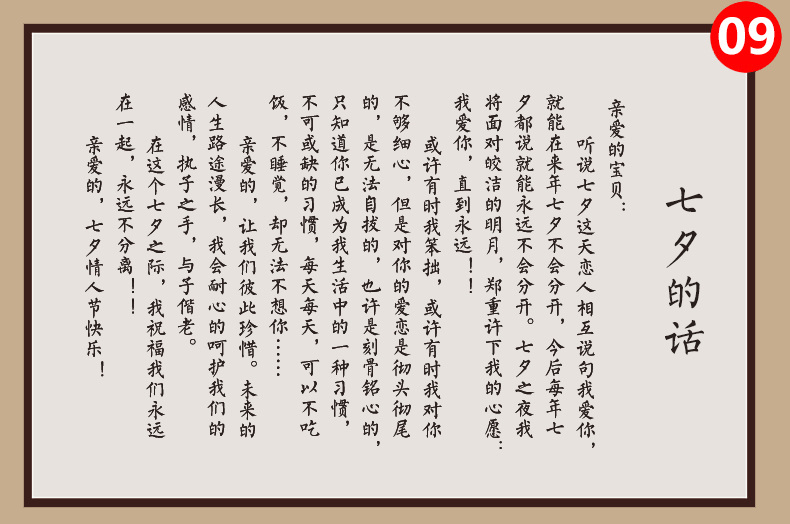 09
七夕的话
亲爱的宝贝：
听说七夕这天恋人相互说句我爱你，
就能在来年七夕不会分开，今后每年七
夕都说就能永远不会分开。七夕之夜我
将面对皎洁的明月，郑重许下我的心愿：
我爱你，直到永远！！
或许有时我笨拙，或许有时我对你
不够细心，但是对你的爱恋是彻头彻尾
的，是无法自拔的，也许是刻骨铭心的，
只知道你已成为我生活中的一种习惯，
不可或缺的习惯，每天每天，可以不吃
饭，不睡觉，却无法不想你……
亲爱的，让我们彼此珍惜。未来的
人生路途漫长，我会耐心的呵护我们的
感情，执子之手，与子偕老。
在这个七夕之际，我祝福我们永远
在一起，永远不分离！！
亲爱的，七夕情人节快乐！